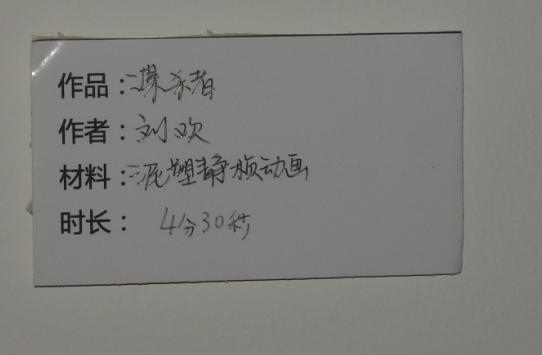 作品：谋杀者
作者：刘欢
材料：泥塑静帧动画
时长：4分30秒